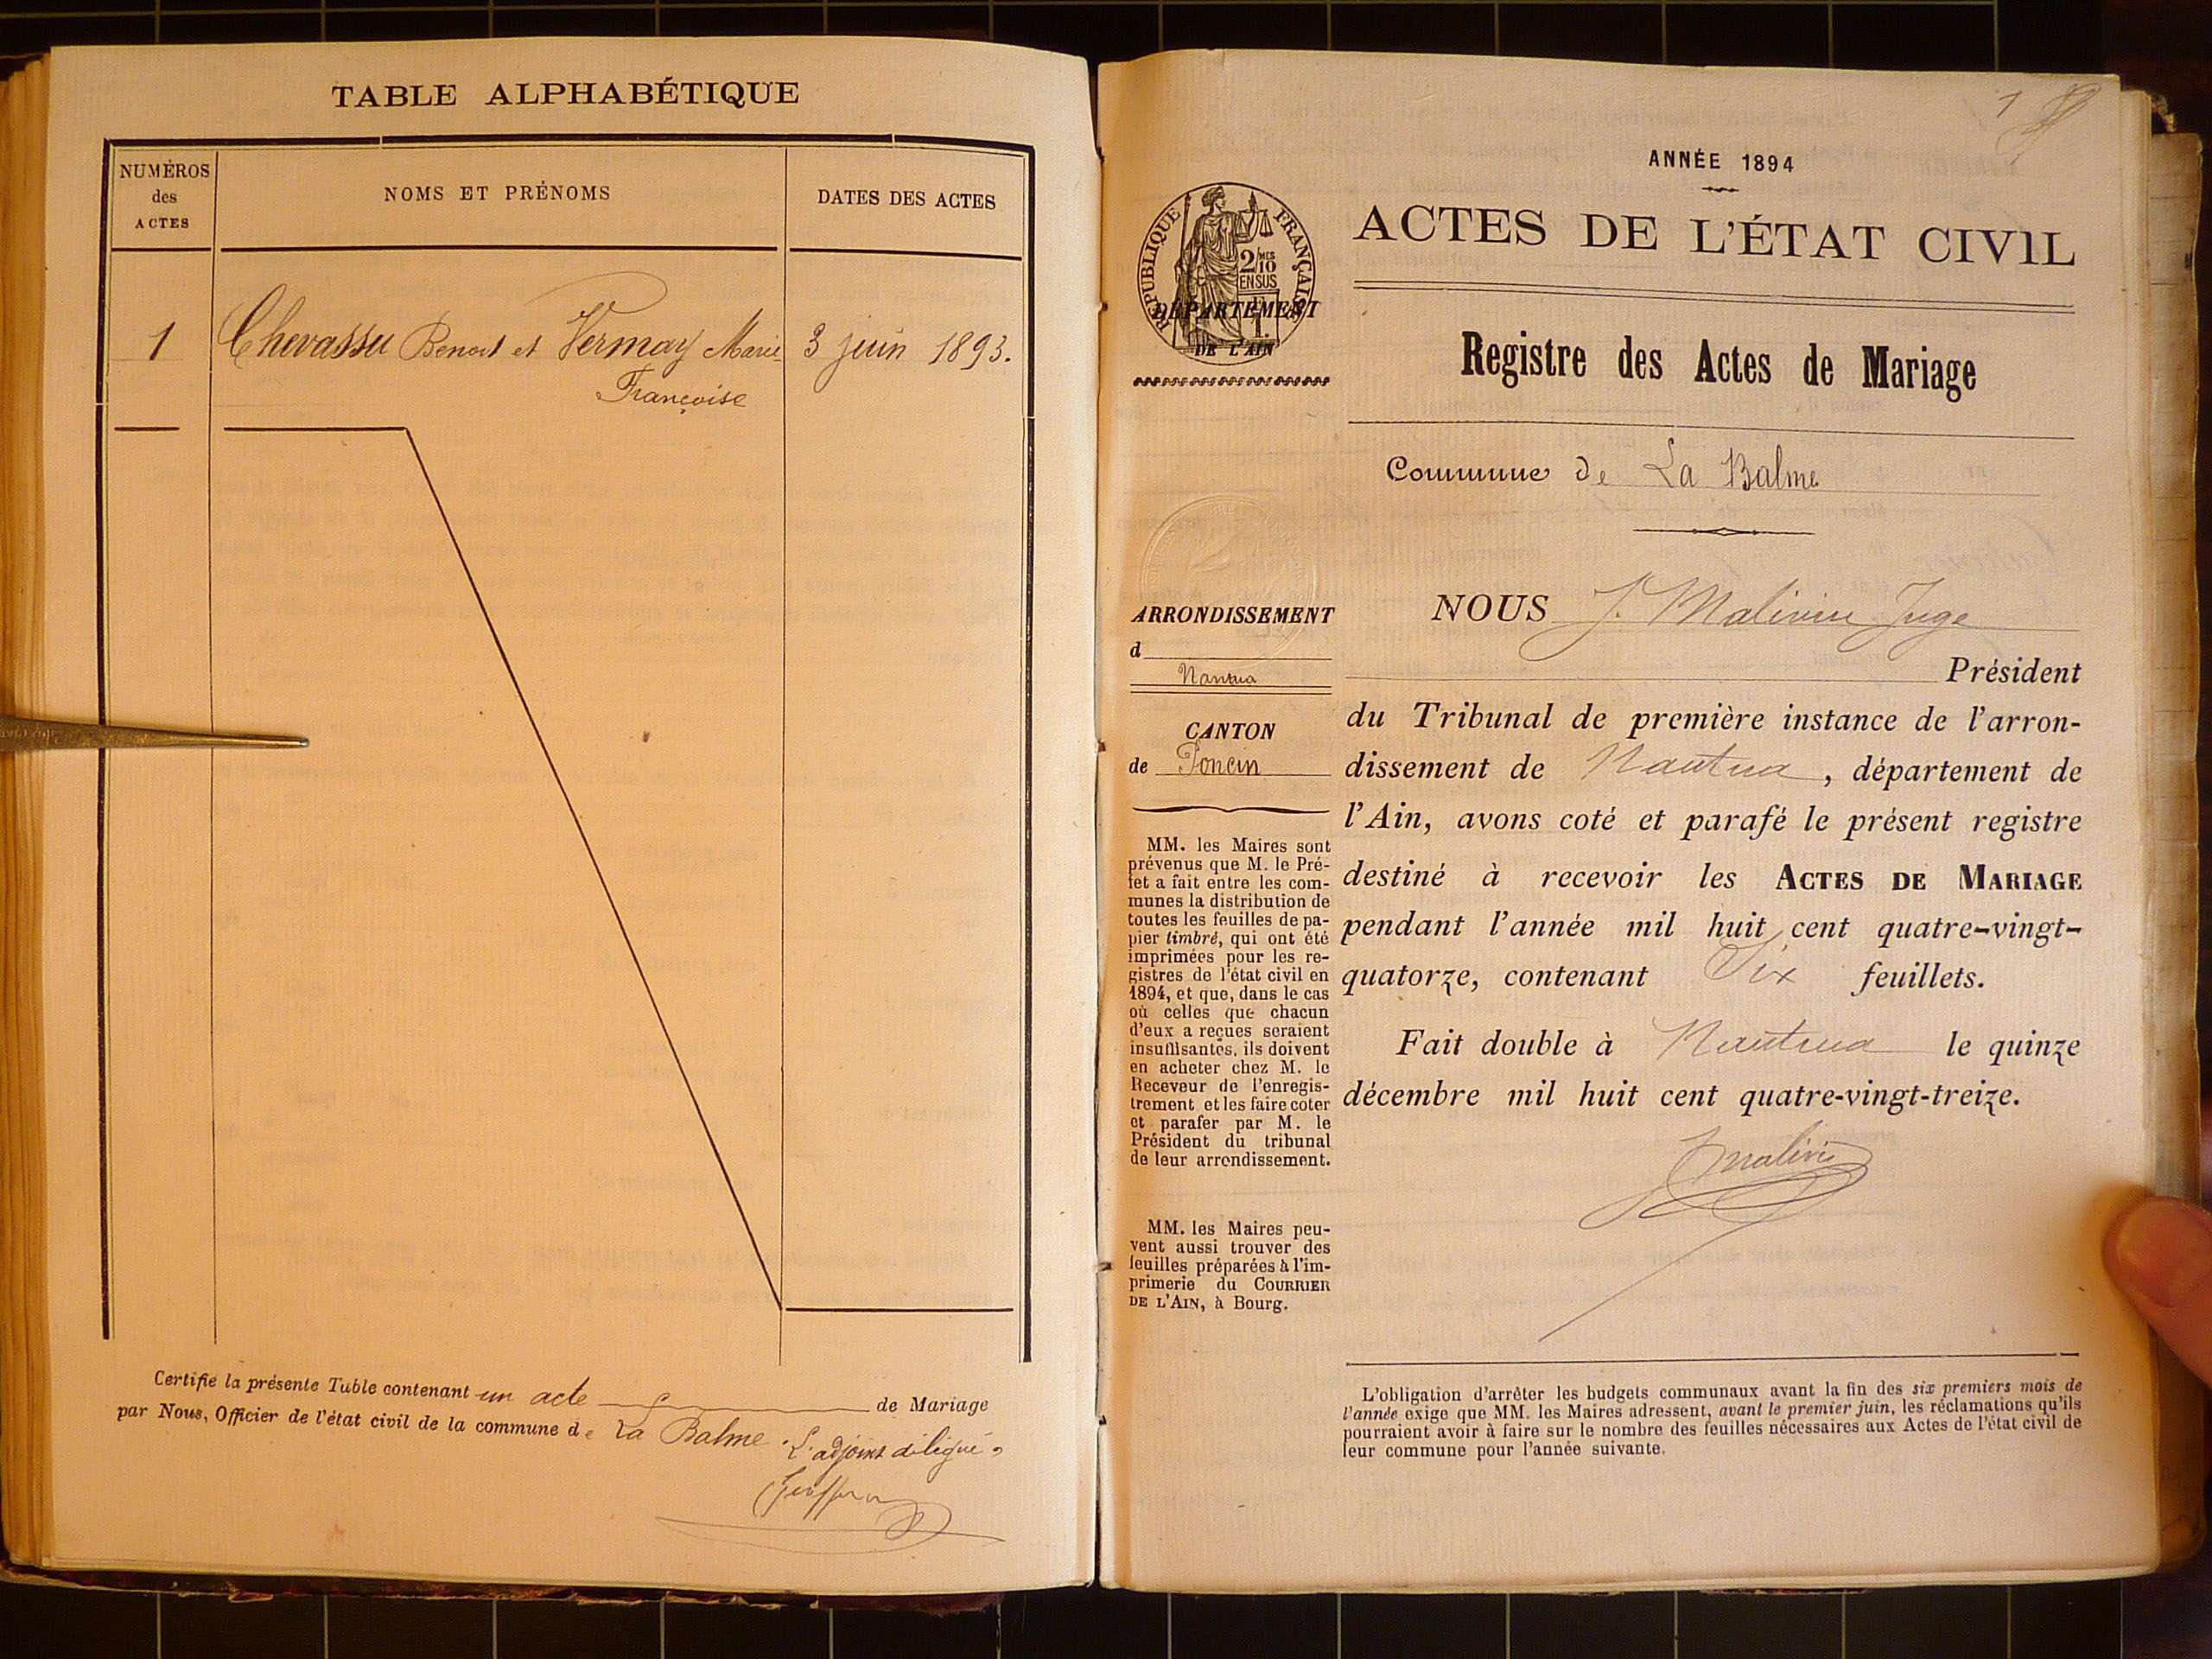 TABLE ALPHABÉTIQUE
NUMÉROS
des
ACTES
NOMS ET PRÉNOMS
DATES DES ACTES
1
Chevassu Benoit et Vermay Marie
Françoise
3 juin 1893.
Certifie la présente Table contenant un acte de Mariage
par Nous, Officier de l'état civil de la commune de La Balme. L'adjoint délégué,
1
ANNÉE 1894
ACTES DE L'ÉTAT CIVIL
RÉPUBLIQUE FRANÇAISE
2/10 MES
EN SUS
DÉPARTEMENT
DE L'AIN
Registre des Actes de Mariage
Commune de La Balme
ARRONDISSEMENT
d
Nantua
CANTON
de Poncin
MM. les Maires sont
prévenus que M. le Pré-
fet a fait entre les com-
munes la distribution de
toutes les feuilles de pa-
pier timbré, qui ont été
imprimées pour les re-
gistres de l'état civil en
1894, et que, dans le cas
où celles que chacun
d'eux a reçues seraient
insuffisantes, ils doivent
en acheter chez M. le
Receveur de l'enregis-
trement et les faire coter
et parafer par M. le
Président du tribunal
de leur arrondissement.
MM. les Maires peu-
vent aussi trouver des
feuilles préparées à l'im-
primerie du COURRIER
DE L'AIN, à Bourg.
NOUS J. Malivin Juge
Président
du Tribunal de première instance de l'arron-
dissement de Nantua, département de
l'Ain, avons coté et parafé le présent registre
destiné à recevoir les ACTES DE MARIAGE
pendant l'année mil huit cent quatre-vingt-
quatorze, contenant Six feuillets.
Fait double à Nantua le quinze
décembre mil huit cent quatre-vingt-treize.
L'obligation d'arrêter les budgets communaux avant la fin des six premiers mois de
l'année exige que MM. les Maires adressent, avant le premier juin, les réclamations qu'ils
pourraient avoir à faire sur le nombre des feuilles nécessaires aux Actes de l'état civil de
leur commune pour l'année suivante.